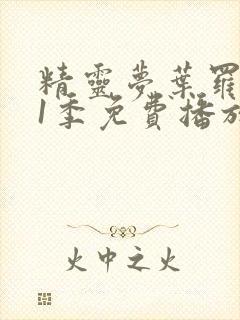 精靈夢葉羅
1季免費播放
火中之火